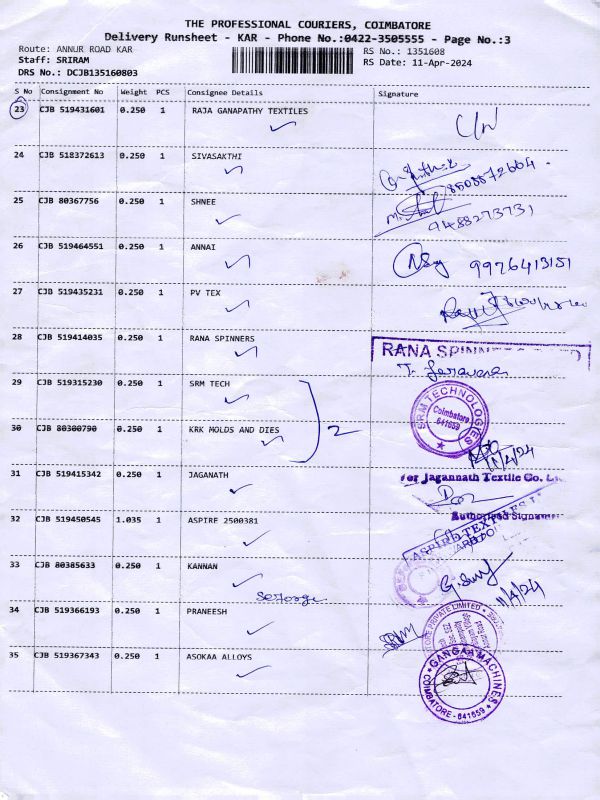 THE PROFESSIONAL COURIERS, COIMBATORE
Delivery Runsheet - KAR - Phone No.:0422-3505555 - Page No.:3
Route: ANNUR ROAD KAR
RS No.: 1351608
Staff: SRIRAM
RS Date: 11-Apr-2024
DRS No.: DCJB135160803
S No Consignment No Weight PCS Consignee Details Signature
23 CJB 519431601 0.250 1 RAJA GANAPATHY TEXTILES
24 CJB 518372613 0.250 1 SIVASAKTHI
25 CJB 80367756 0.250 1 SHNEE 9488273731
26 CJB 519464551 0.250 1 ANNAI 9976413151
27 CJB 519435231 0.250 1 PV TEX
28 CJB 519414035 0.250 1 RANA SPINNERS
RANA SPINN
29 CJB 519315230 0.250 1 SRM TECH
SRM TECHNOLOGIES
Coimbatore
641659
30 CJB 80300790 0.250 1 KRK MOLDS AND DIES 2
11/4/24
31 CJB 519415342 0.250 1 JAGANATH
For Jagannath Textile Co.
Authorised Signatory
32 CJB 519450545 1.035 1 ASPIRE 2500381
ASPIRE TEXTILES
33 CJB 80385633 0.250 1 KANNAN
11/4/24
34 CJB 519366193 0.250 1 PRANEESH
PRIVATE LIMITED
35 CJB 519367343 0.250 1 ASOKAA ALLOYS
GANGAA MACHINES
COIMBATORE - 641659